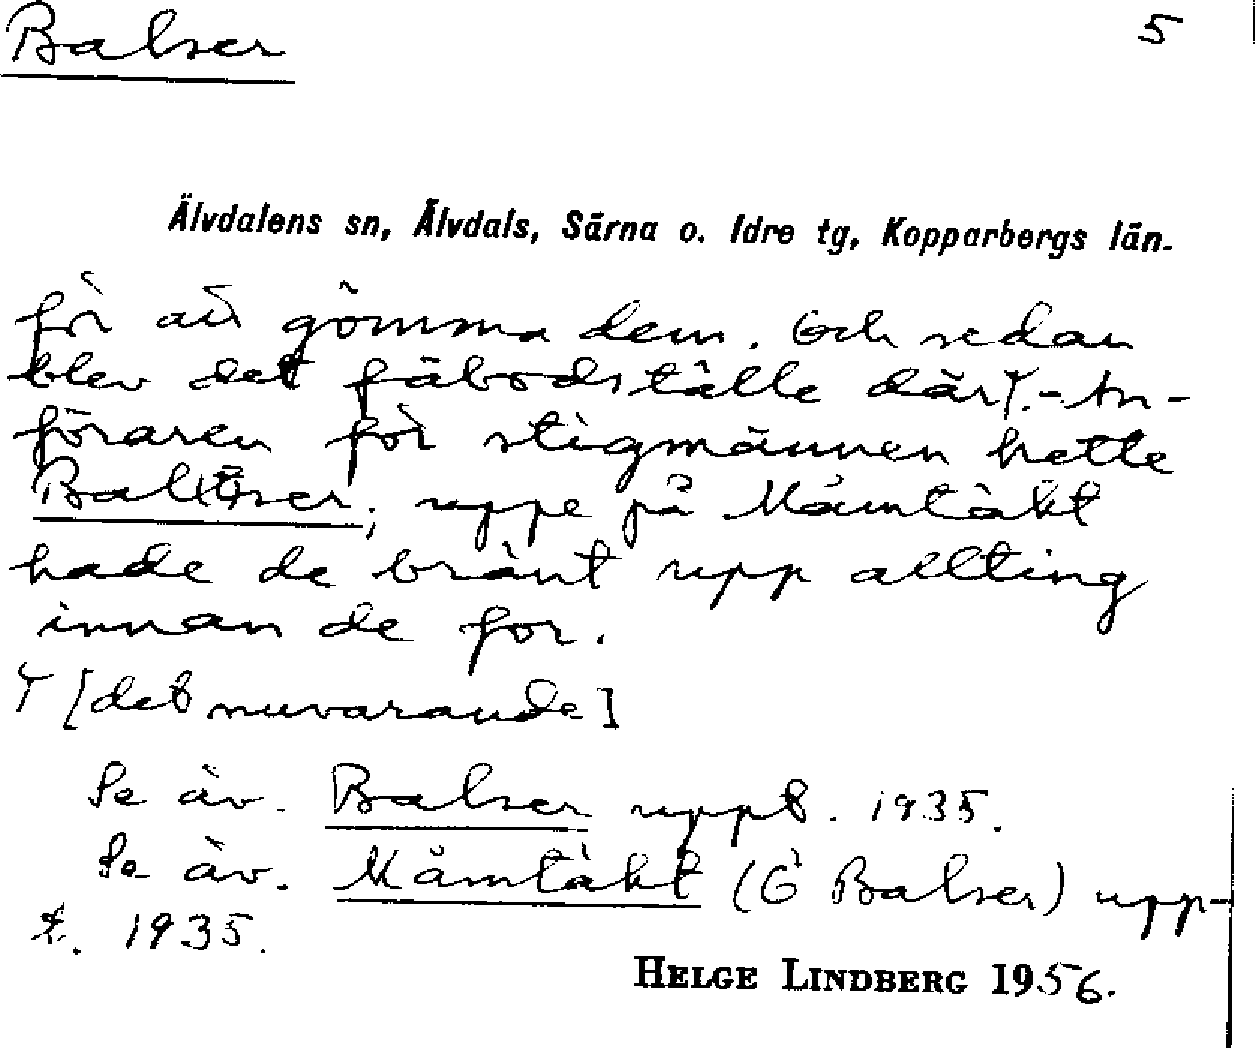 Balser 5
Älvdalens sn, Älvdals, Särna o. Idre tg, Kopparbergs län.
för att gömma dem. Och sedan
blev det fäbodställe där⸆. - An-
föraren för stigmännen hette
Balser; uppe på Måmtäkt
hade de bränt upp allting
innan de for.
⸆ [det nuvarande]
Se äv. Balser uppt. 1935.
Se äv. Måmtäkt (G Balser) upp-
t. 1935.
HELGE LINDBERG 1956.